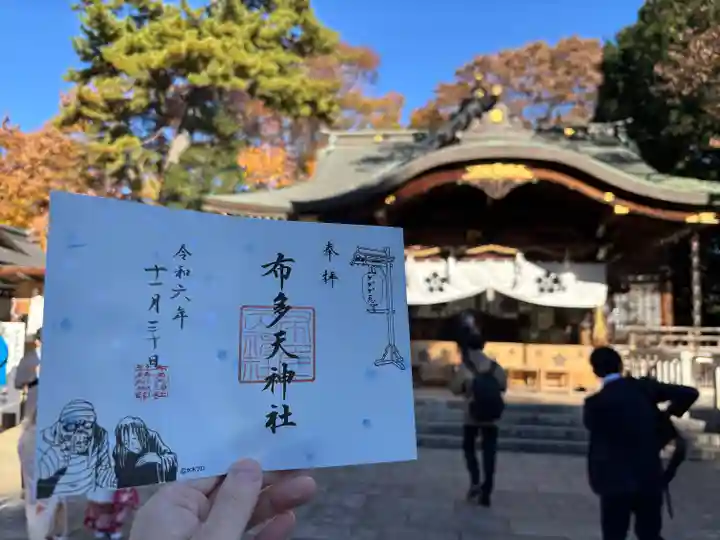 奉拝
布多天神社
令和六年
十一月三十日
©水木プロ